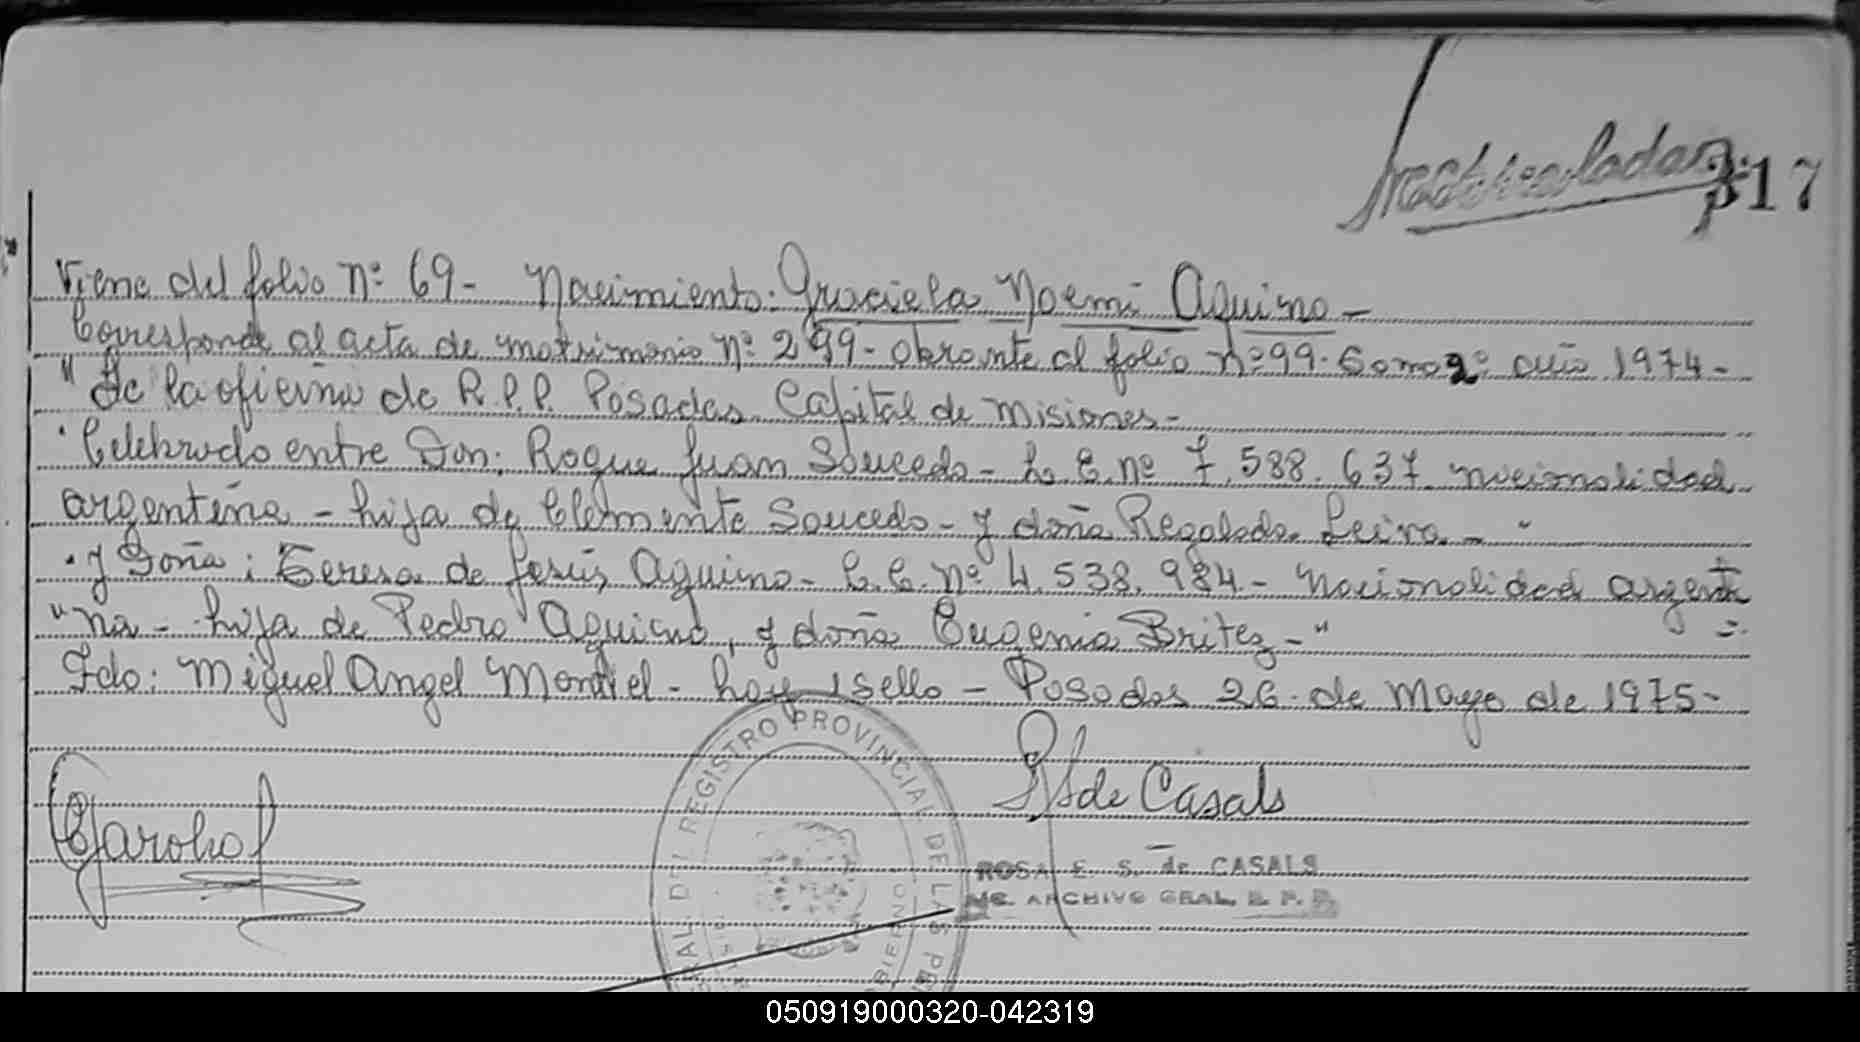 317
Viene del folio Nº 69- Nacimiento: Graciela Noemi Aquino-
Corresponde al acta de matrimonio Nº 299- obrante al folio nº 99. Tomo 2º año 1974-
" de la oficina de R.P.P. Posadas Capital de Misiones-
Celebrado entre Don: Roque Juan Soucedo- L.E. nº 7.588.637 nacionalidad
argentina - hijo de Clemente Soucedo- y doña Regalada Leiva-"
y Doña: Teresa de Jesús Aquino- L.C. Nº 4.538.984- Nacionalidad argenti
"na- hija de Pedro Aquino, y doña Eugenia Britez-"
Fdo: Miguel Angel Montiel- hay 1 sello - Posadas 26 de Mayo de 1975-
de Casals
ROSA E. S. de CASALS
ARCHIVO GRAL. R. P. P.
DEL REGISTRO PROVINCIAL DE LAS
050919000320-042319